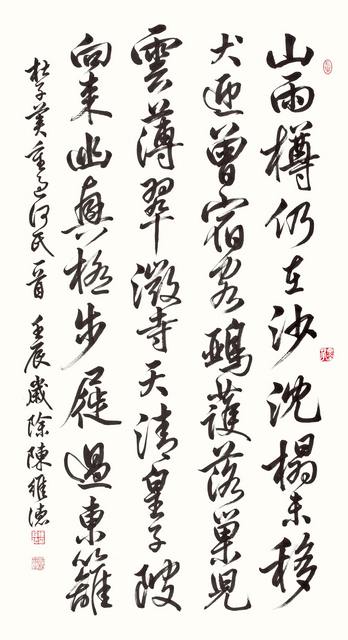 山雨樽仍在沙沈榻未移
犬迎曾宿客鵶護落巢兒
雲薄翠微寺天清皇子陂
向來幽興極步屣過東籬
杜子美重過何氏一首 壬辰歲除陳維德